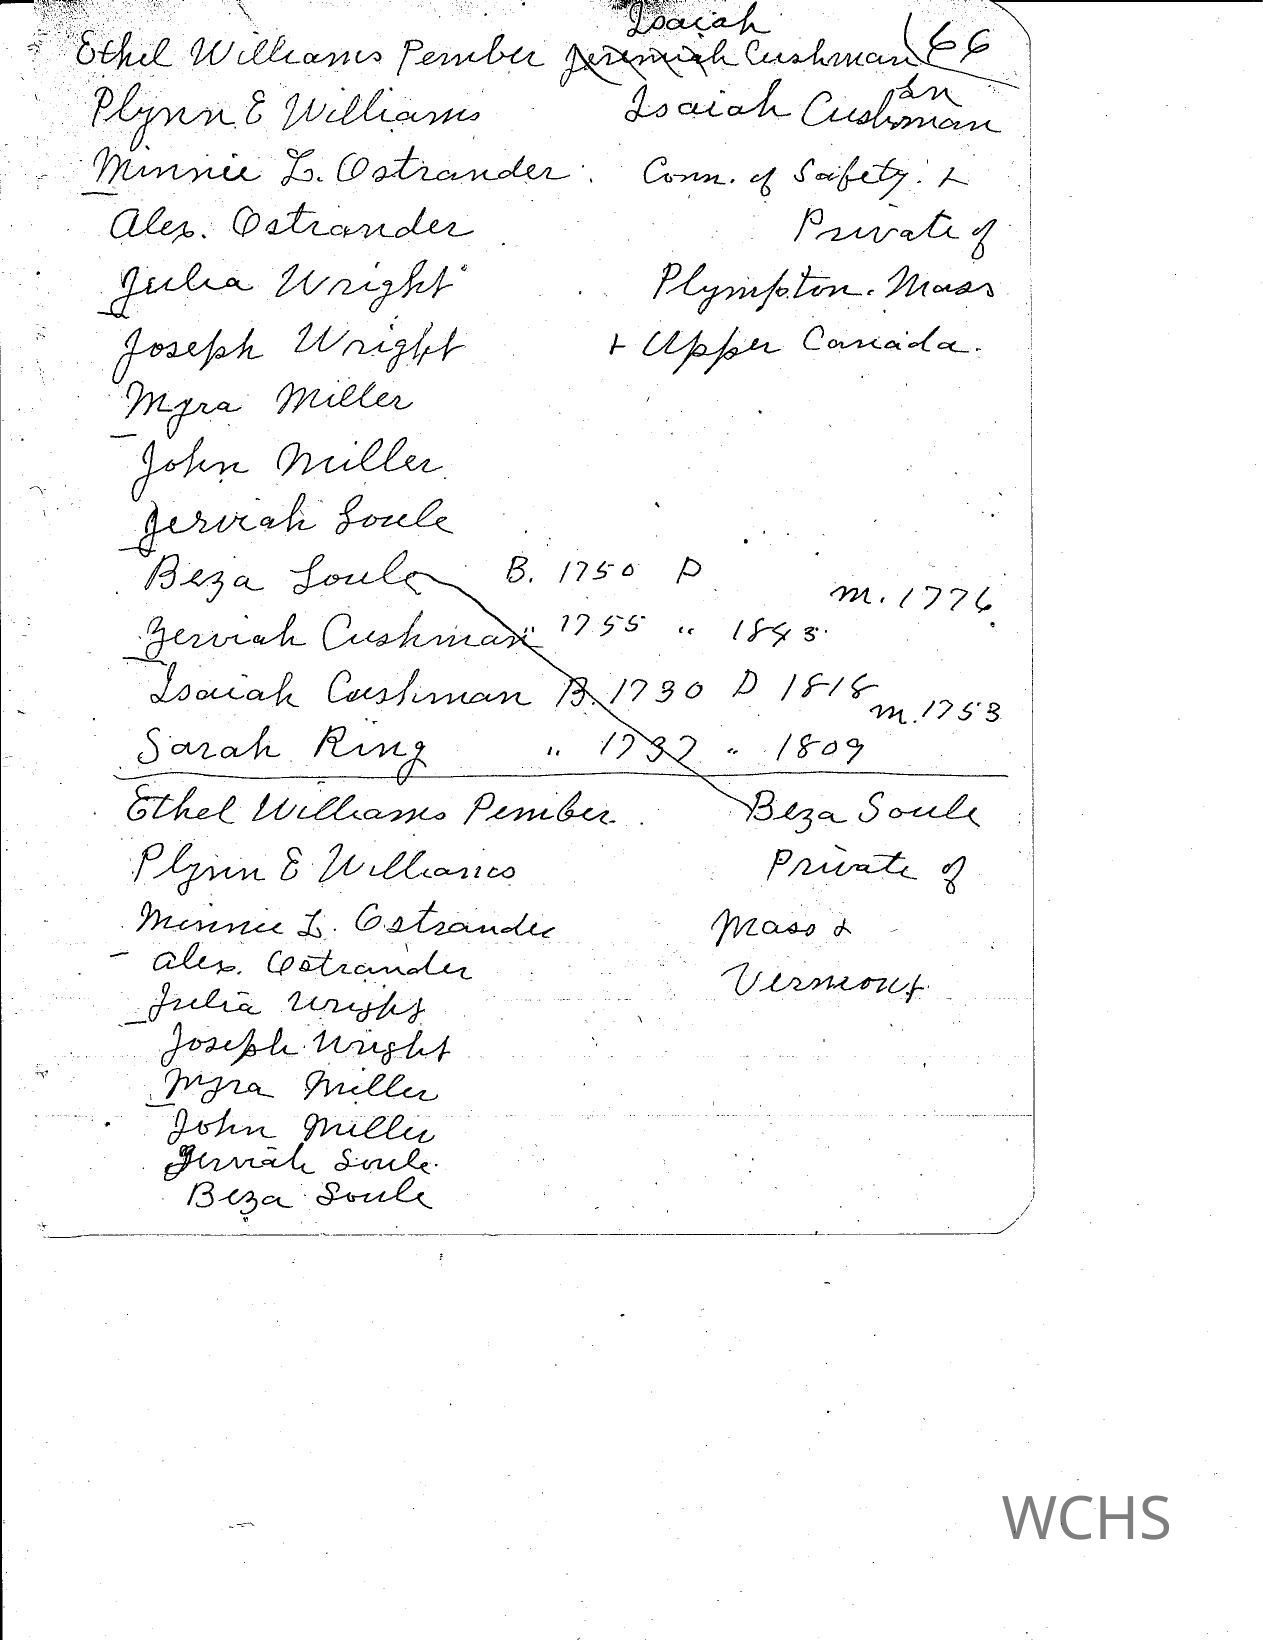 Isaiah
Ethel Williams Pember Jeremiah Cushman 66
Sn
Plynn E Williams Isaiah Cushman
Minnie L. Ostrander. Com. of Safety. &
Alex. Ostrander Private of
Julia Wright Plympton. Mass
Joseph Wright & Upper Canada.
Myra Miller
John Miller
Zerviah Soule
Beza Soule B. 1750 D
m. 1776.
Zerviah Cushman " 1755 " 1843.
Isaiah Cushman B. 1730 D 1818
m. 1753
Sarah Ring " 1737 " 1809
Ethel Williams Pember. Beza Soule
Plynn E Williams Private of
Minnie L. Ostrander Mass &
Alex. Ostrander Vermont
Julia Wright
Joseph Wright
Myra Miller
John Miller
Zerviah Soule.
Beza Soule
WCHS